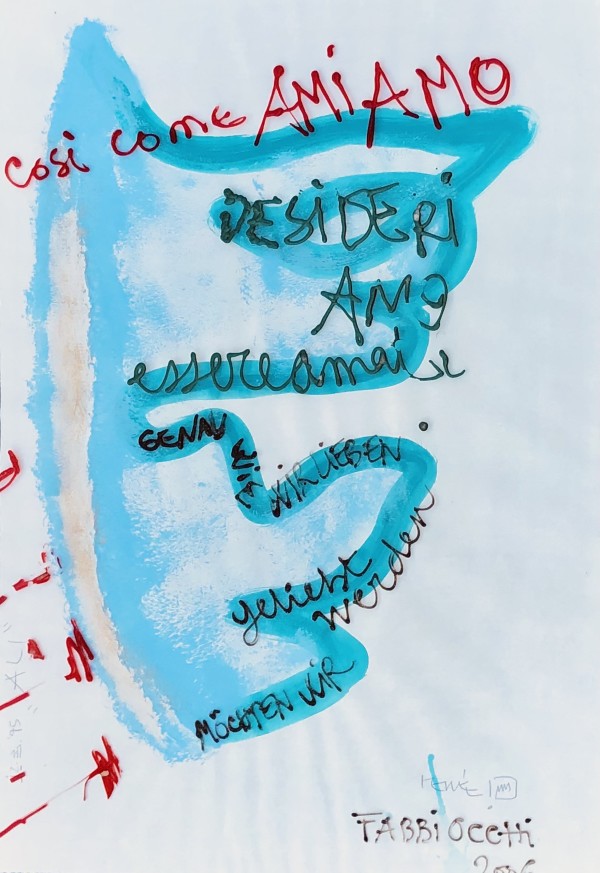 così come AMIAMO
DESIDERI
AMO
essere amati
GENAU
WIE
WIR LIEBEN.
geliebt
werden
MÖCHTEN WIR
FABBI OCETTI
2006